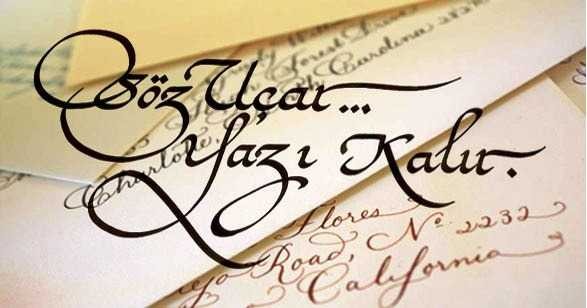 Söz Uçar...
Yazı Kalır.
Forest
Carolina 28210
Charlotte,
Flores
Road, No. 2232
California